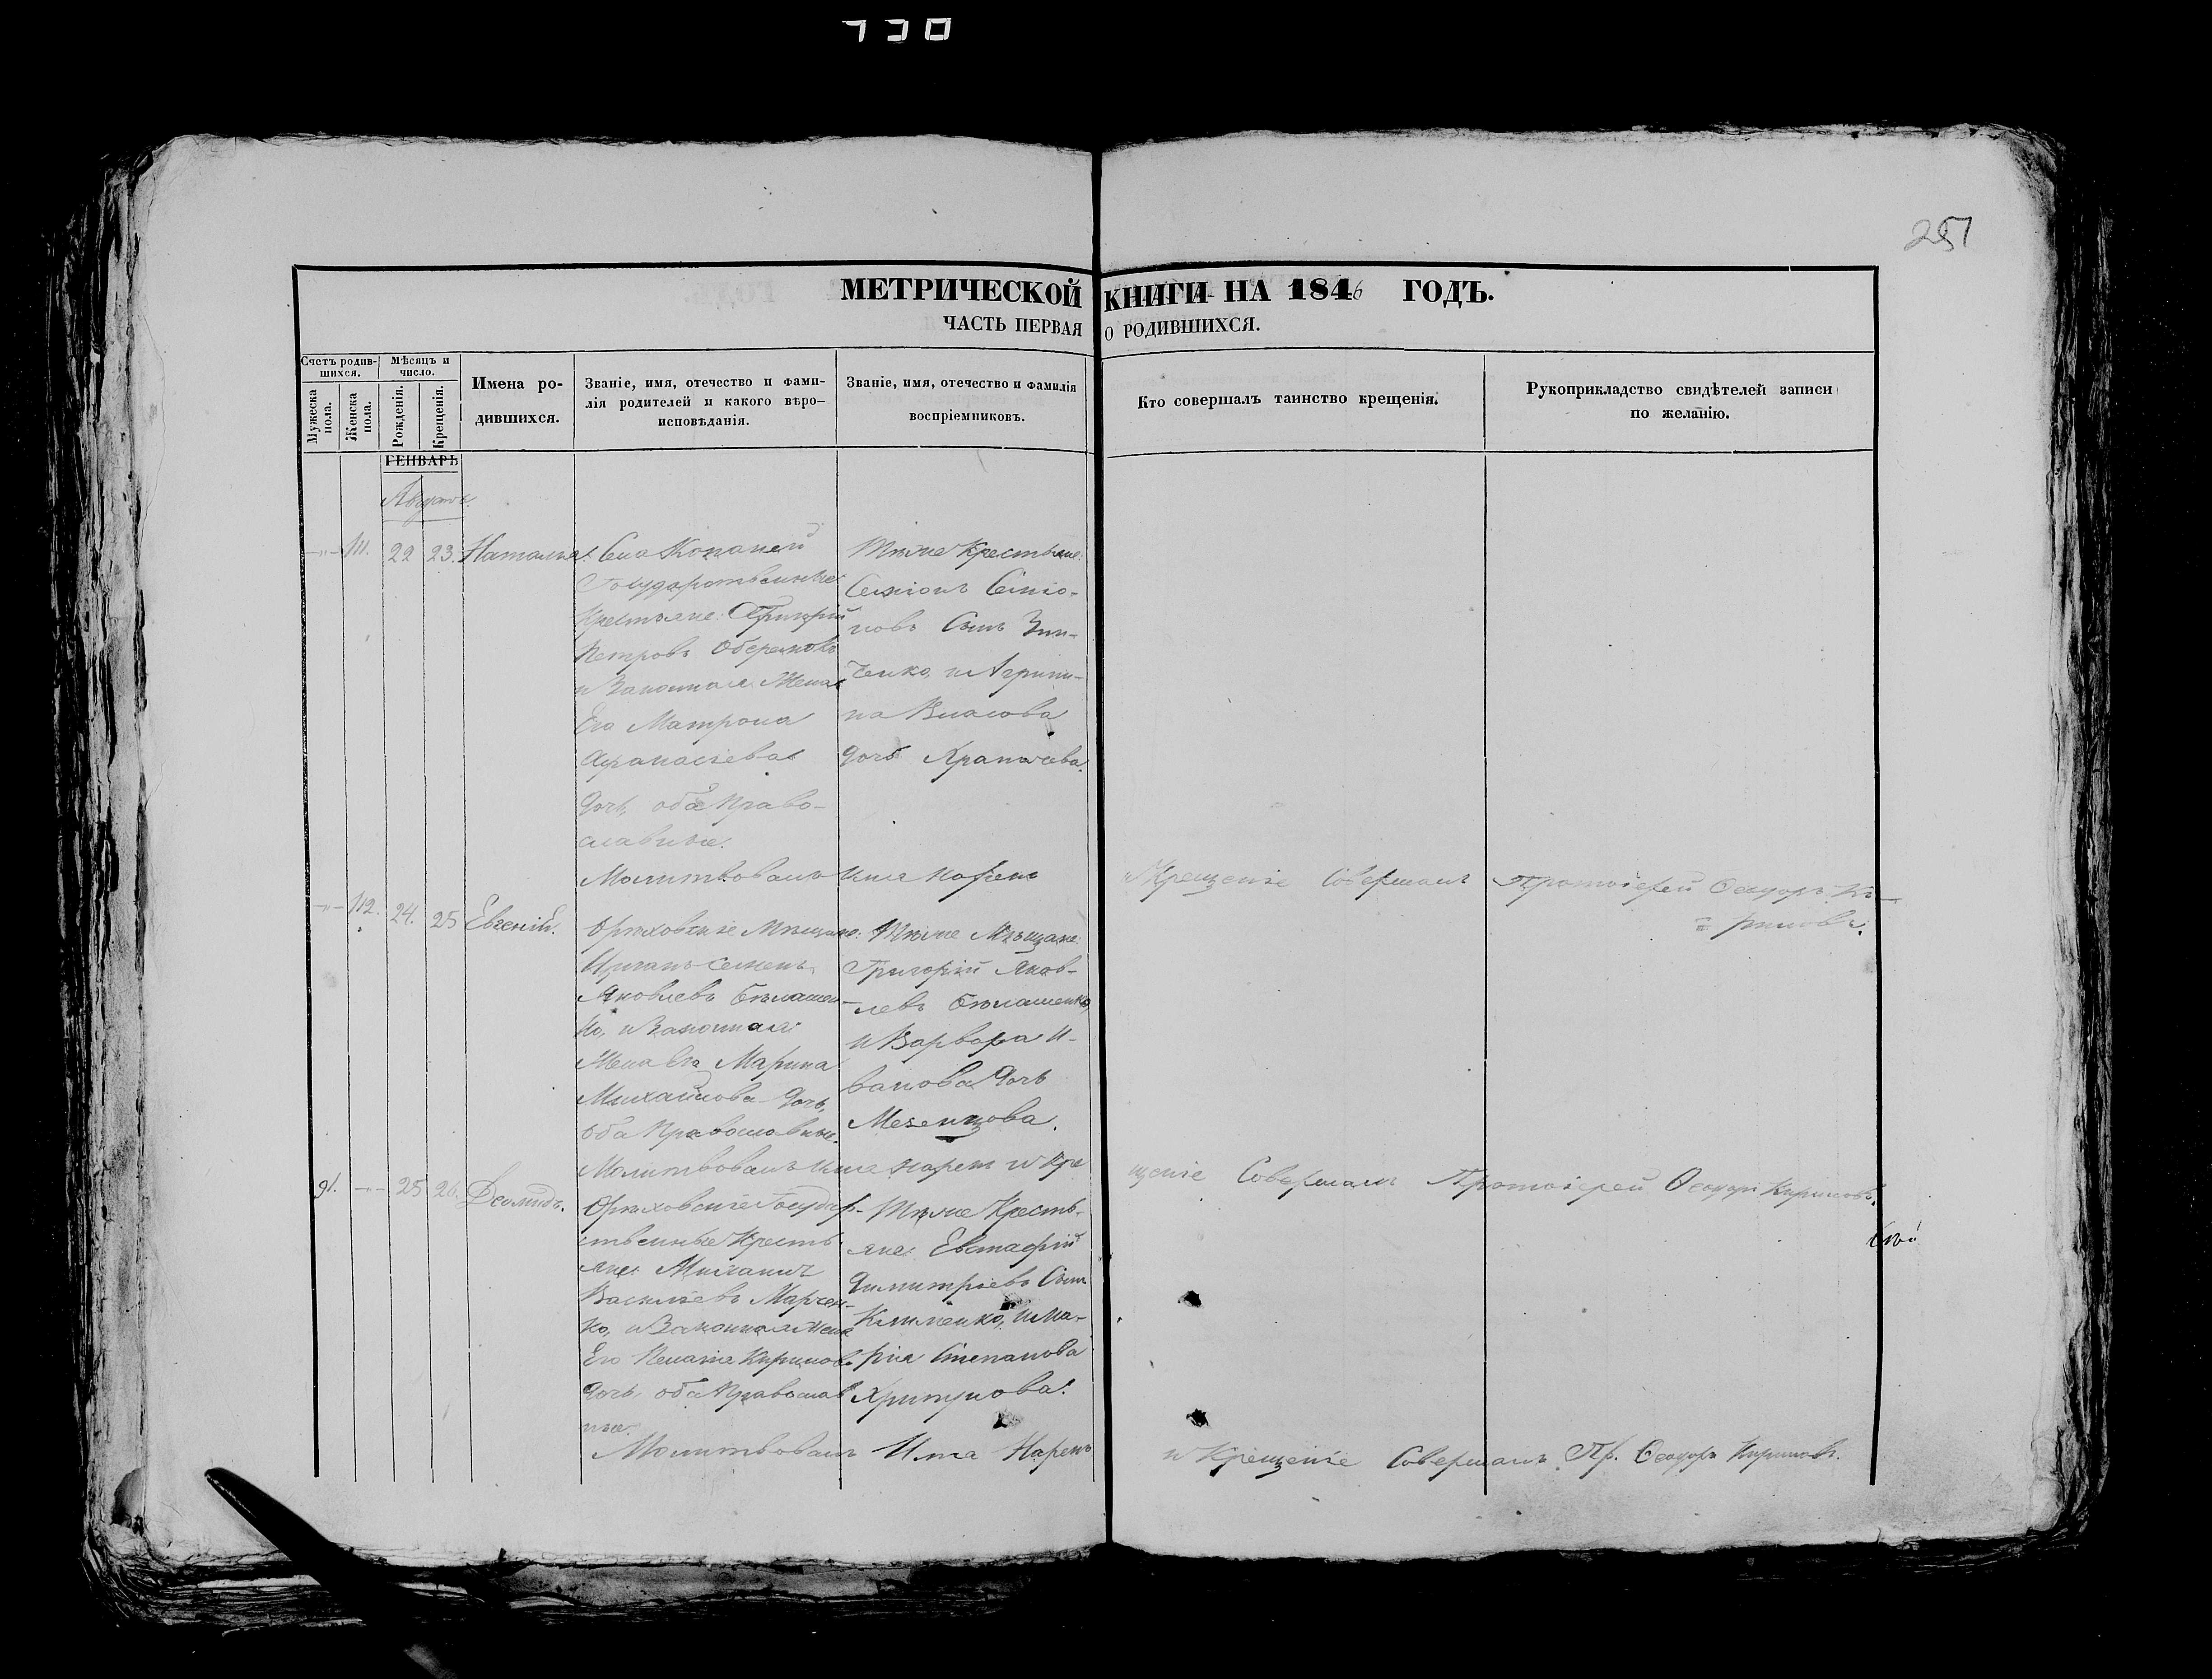 730
251
МЕТРИЧЕСКОЙ КНИГИ НА 1846 ГОДЪ.
ЧАСТЬ ПЕРВАЯ О РОДИВШИХСЯ.
Счетъ родив-
шихся.
Мужеска пола.
Женска пола.
Мѣсяцъ и число.
Рожденія.
Крещенія.
Имена ро-
дившихся.
Званіе, имя, отечество и фами-
лія родителей и какого вѣро-
исповѣданія.
Званіе, имя, отечество и фамилія
воспріемниковъ.
Кто совершалъ таинство крещенія.
Рукоприкладство свидѣтелей записи
по желанію.
ГЕНВАРЬ
Августъ
—„— 111. 22 23. Наталья.
Села Копаней
Государственные
Крестьяне: Григорій
Петровъ
и Законная Жена
Его Матрона
Афанасіева
дочь, оба Право-
славные.
Тѣже Крестьяне:
Семіонъ Семіо-
новъ Сынъ Зин-
ченко, и Агрипи-
на Власова
дочь
Молитвовалъ Имя нарекъ и Крещеніе Совершалъ Протоіерей Феодоръ Ки-
риловъ.
—„— 112. 24. 25 Евгеній.
Орѣховскіе Мѣщане:
Семенъ
Яковлевъ Бѣлашен-
ко, и Законная
Жена Его Марина
Михайлова дочь,
оба Православные.
Тѣже Мѣщане:
Григорій Яков-
левъ Бѣлашенко,
и Варвара И-
ванова дочь
Мезенцова.
Молитвовалъ Имя нарекъ и Кре
щеніе Совершалъ Протоіерей Феодоръ Кириловъ.
91. —„— 25 26. Деомидъ.
Орѣховскіе Государ-
ственные Кресть
яне:
Васильевъ Марчен-
ко, и Законная Жена
Его Пелагія Кирилов.
дочь, оба Православ
ные.
Тѣже Кресть-
яне: Евстафій
Димитріевъ Сынъ
Клименко, и Ма-
рія Степанова
Хритунова.
Молитвовалъ Имя Нарекъ и Крещеніе Совершалъ Пр. Феодоръ Кириловъ.